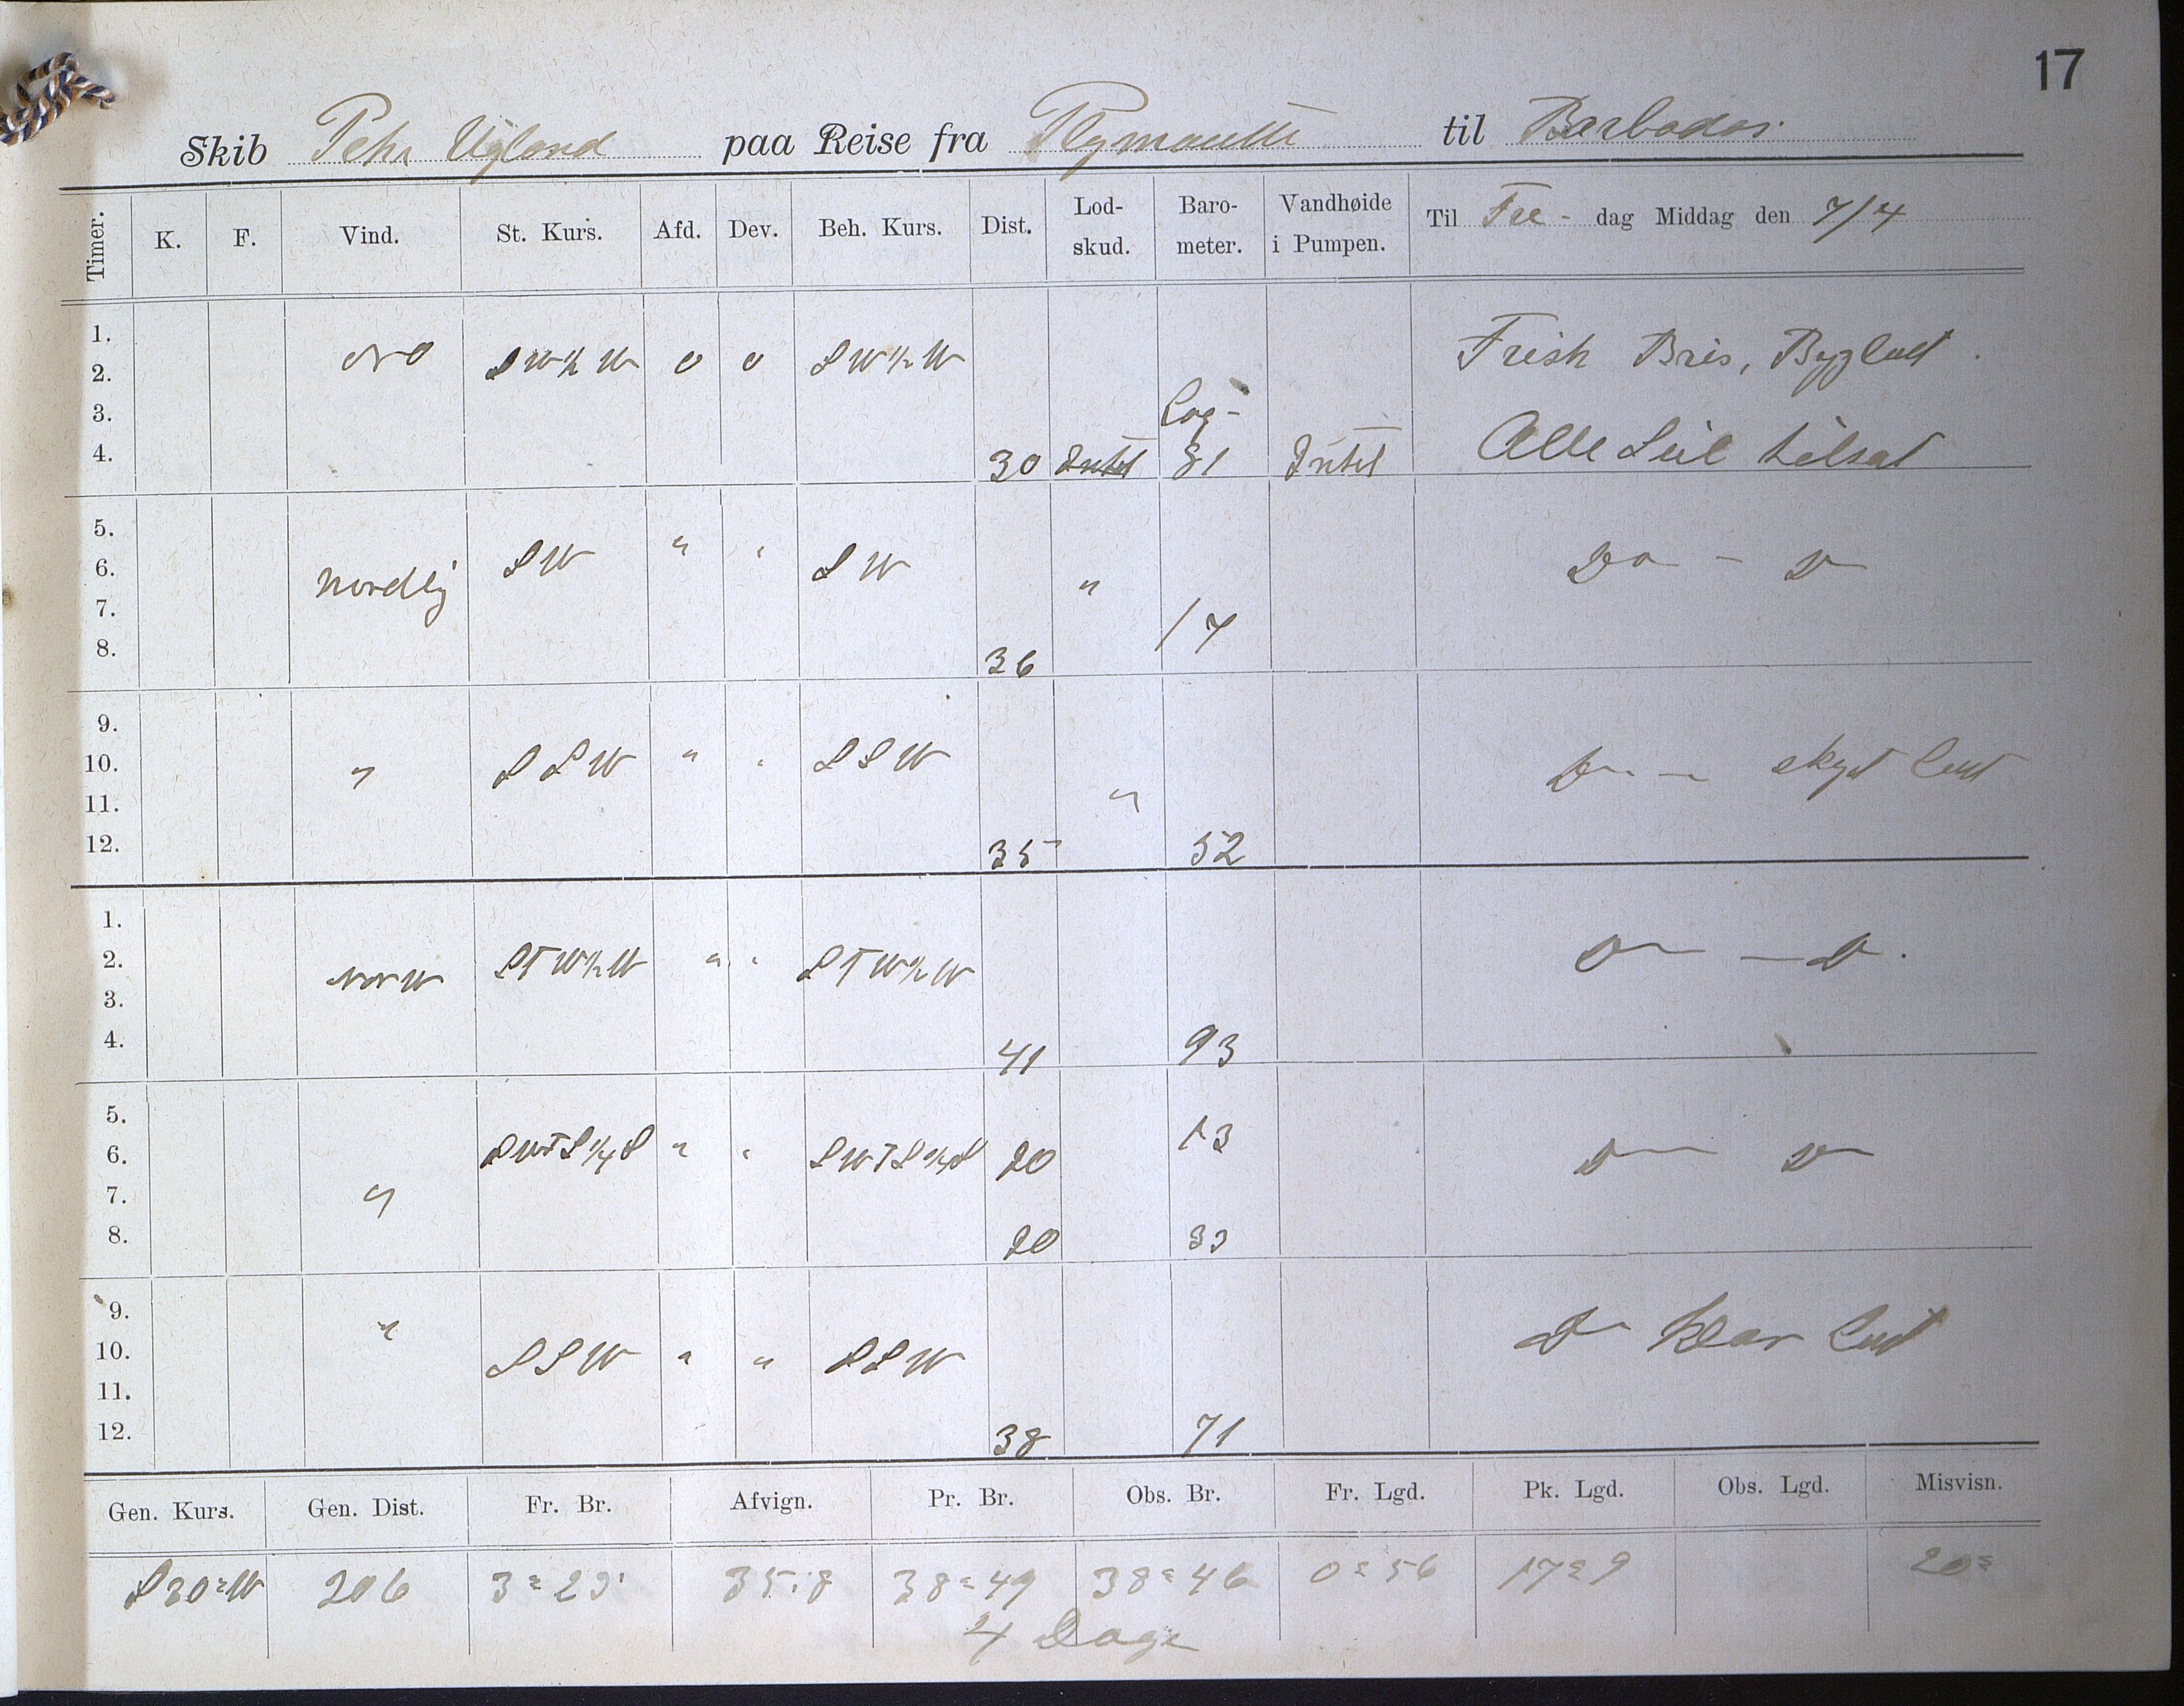 17
Skib Peter Ugland paa Reise fra Plymouth til Barbados.
Timer. K. F. Vind. St. Kurs. Afd. Dev. Beh. Kurs. Dist. Lod-skud. Baro-meter. Vandhøide i Pumpen. Til Fre- dag Middag den 7/4
1.
2. NO SW½W 0 0 SW½W Frisk Bris, Bygluft.
3. Log-
4. 30 Intet 81 Intet Alle Seil tilsat
5.
6. Nordlig SW " " SW " Do - D
7. 17
8. 36
9.
10. " SSW " " SSW D - skyet Luft
11. "
12. 35 52
1.
2. NNW STW½W " " STW½W D - D.
3.
4. 41 93
5.
6. SWTS¼S " " SWTS¼S 20 13 D D
7. "
8. 20 33
9. "
10. SSW " " SSW D Klar Luft
11.
12. 38 71
Gen. Kurs. Gen. Dist. Fr. Br. Afvign. Pr. Br. Obs. Br. Fr. Lgd. Pk. Lgd. Obs. Lgd. Misvisn.
S30°W 206 3° 23' 35.8 38° 49 38° 46 0° 56 17° 9 20°
4 Dage